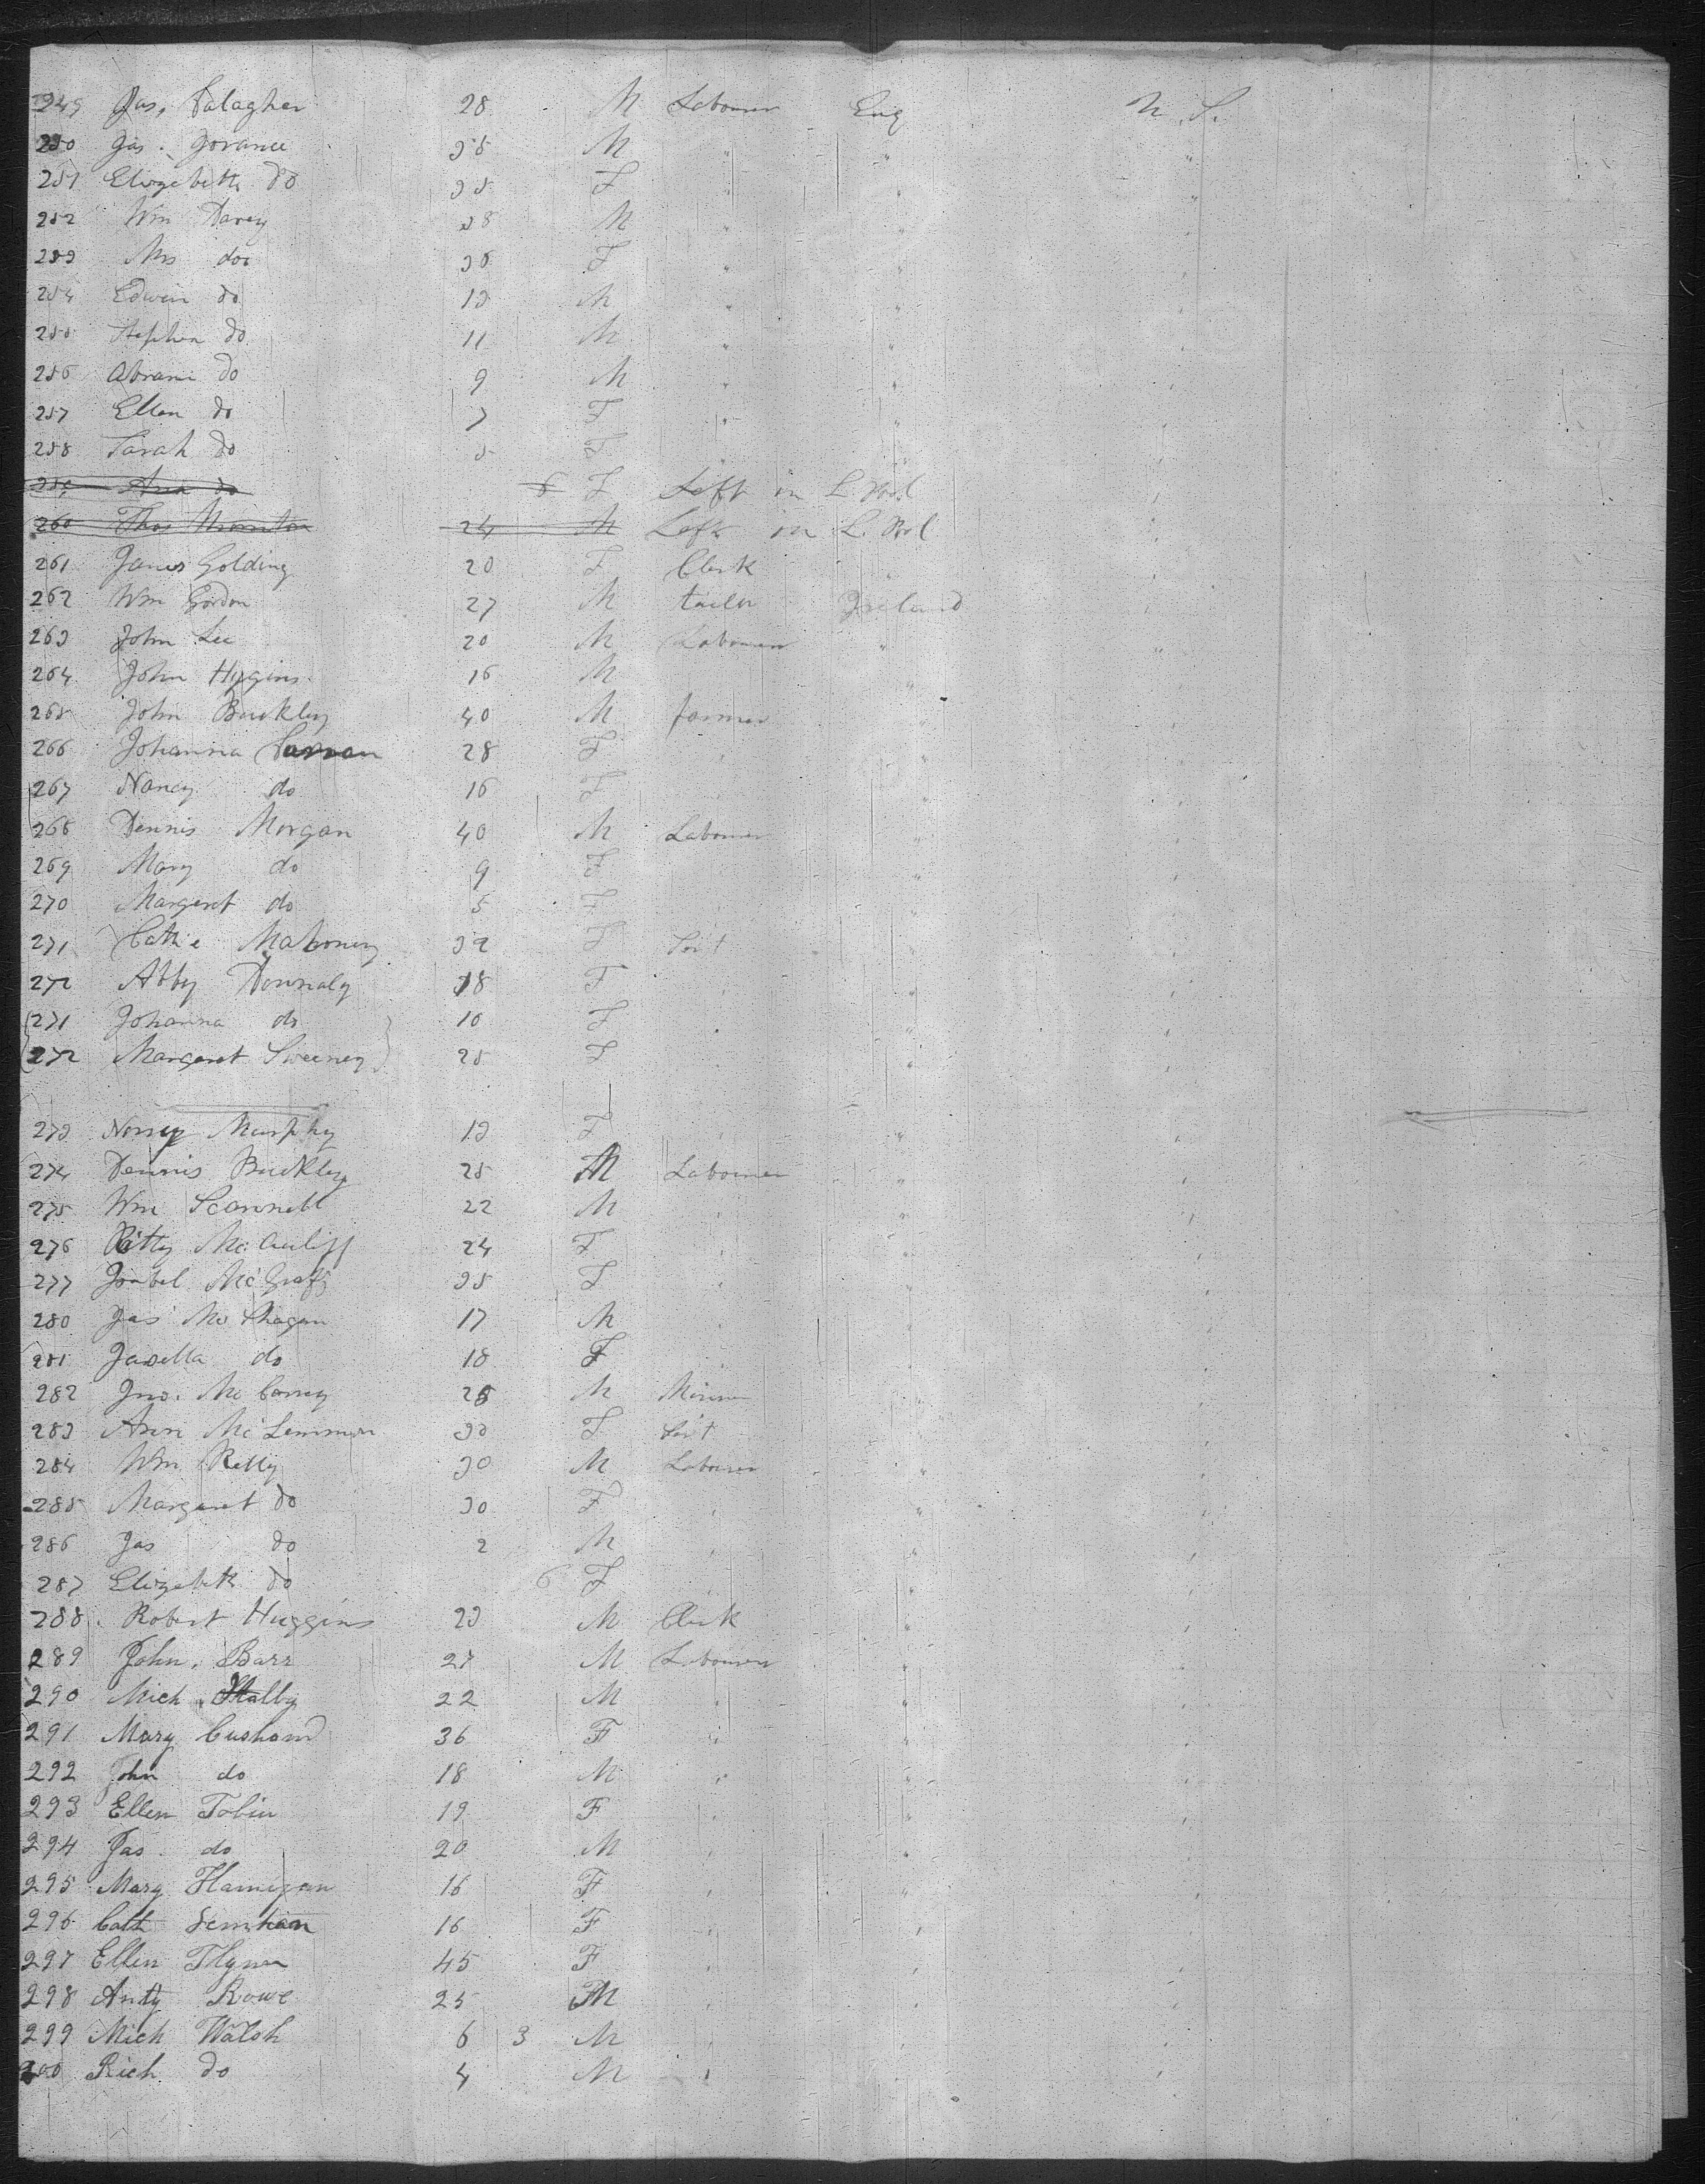 249 Jas, Galagher 28 M Labourer Eng U. S.
250 Jas. 35 M " " "
251 Elizabeth do 35 F " " "
252 Wm Davey 38 M " " "
253 Mrs do 36 F " " "
254 Edwin do 13 M " " "
255 Stephen do 11 M " " "
256 Abram do 9 M " " "
257 Ellen do 7 F " " "
258 Sarah do 5 F " " "
259 Ann do 6 F Left in L. Pool
260 Thos Thornton 24 M Left in L. Pool
261 James Golding 20 F Clerk " "
262 Wm Gordon 27 M tailor Ireland
263 John Lee 20 M Labourer " "
264 John Higgins 16 M " "
265 John Buckley 40 M farmer " "
266 Johanna 28 F " " "
267 Nancy do 16 F " "
268 Dennis Morgan 40 M Labourer " "
269 Mary do 9 F " "
270 Margaret do 5 F " "
271 Cath'e Mahoney 32 F " "
272 Abby Donnaly 18 F " " "
271 Johanna do 10 F " " "
272 Margaret Sweeney 25 F " " "
273 Murphy 13 F " " "
274 Dennis Buckley 25 M Labourer " "
275 Wm Scannell 22 M " " "
276 Kitty McAuliff 24 F " " "
277 35 F " " "
280 Jas 17 M " "
281 do 18 F " " "
282 Jno. 25 M Miner " "
283 Ann McLemmon 30 F " "
284 Wm Kelly 30 M Labourer " "
285 Margaret do 30 F " " "
286 Jas do 2 M " " "
287 Elizabeth do 6 F " " "
288. Robert Huggins 23 M Clerk " "
289 John. Barr 27 M Labourer " "
290 Mich 22 M " " "
291 Mary 36 F " " "
292 John do 18 M " " "
293 Ellen Tobin 19 F " " "
294 Jas. do 20 M " " "
295 Mary Flanigan 16 F " " "
296 Cath 16 F " " "
297 Ellen Flynn 45 F " " "
298 Anty Rowe 25 M " " "
299 Mich Walsh 6 3 M " " "
300 Rich do 4 M " " "